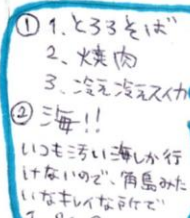 ① 1、とろろそば
2、焼肉
3、冷え冷えスイカ
② 海!!
いつも汚い海しか行
けないので、角島みた
いなキレイな所で